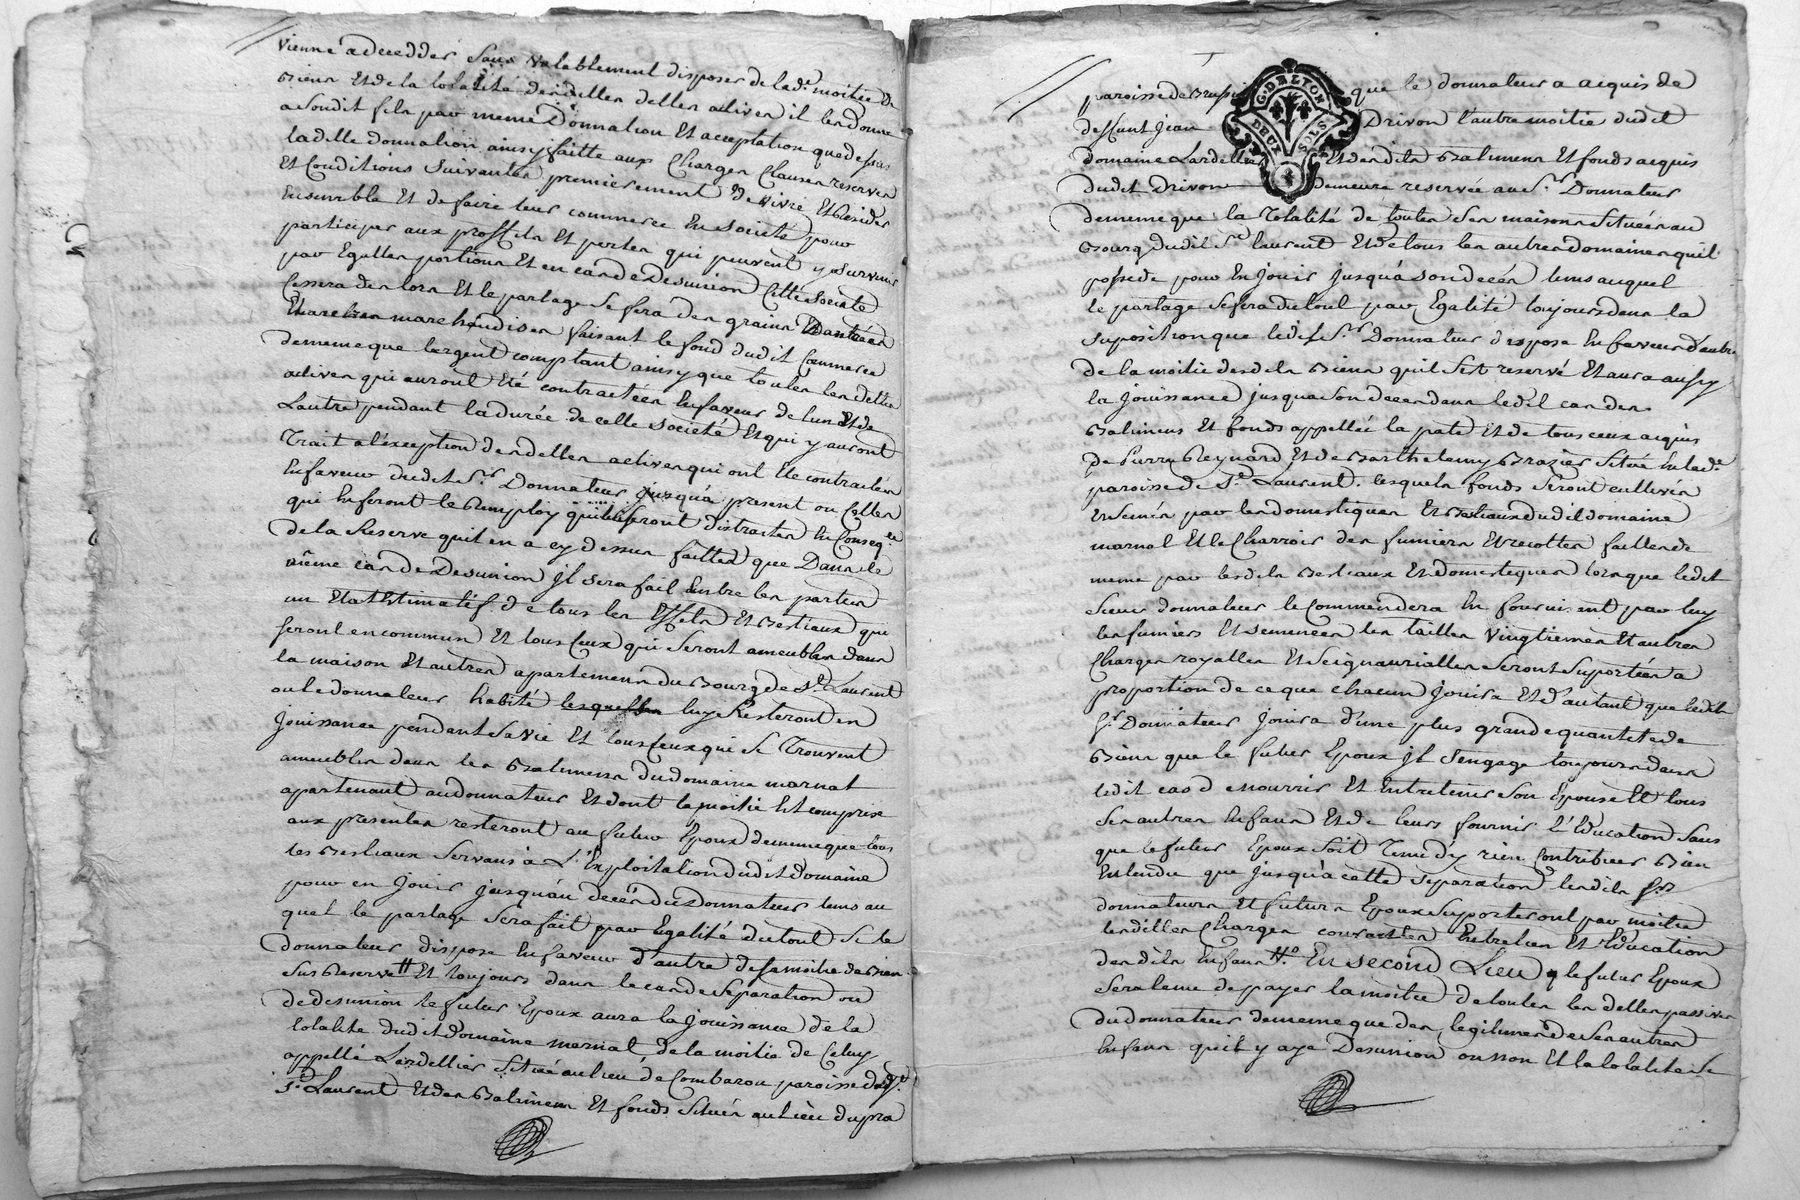 vienne a deceder sans valablement disposer de lad.e moitié de
biens et de la totalité desdittes dettes actives il les donne
a sondit fils par meme donnation et acceptation que dessus
laditte donnation ainsy faitte aux charges clauses reserves
et conditions suivantes premierement de vivre et resider
ensemble et de faire leur commerce en societé pour
participer aux proffits et pertes qui peuvent y survenir
par egalles portions et en cas de desunion cette societé
cessera des lors et le partage se fera des grains danrées
et marchandises faisant le fond dudit commerce
de meme que l'argent comptant ainsy que toutes les dettes
actives qui auront eté contractées en faveur de lun et de
lautre pendant la durée de cette societé et qui y auront
trait a l'exception des dettes actives qui ont eté contractées
en faveur dudit S.r Donnateur jusqu'a present ou celles
qui en feront le remploy qui seront distraittes en conseq.ce
de la reserve quil en a cy dessus faitte que dans le
même cas de desunion il sera fait entre les parties
un etat estimatif de tous les effets et bestiaux qui
seront en commun et tous ceux qui seront ameublés dans
la maison et autres apartemens du bourg de S.t Laurent
ou le donnateur habite lesquelles luy resteront en
jouissance pendant sa vie et tous ceux qui se trouvent
ameublés dans les batimens du domaine marnat
apartenant au donnateur et dont la moitié est comprise
aux presentes resteront au futur epoux de meme que tous
les bestiaux servans à l'exploitation dudit domaine
pour en jouir jusqu'au decés du Donnateur tems au
quel le partage sera fait par egalité du tout si le
donnateur dispose en faveur d'autre de sa moitié de biens
sus reservée et toujours dans le cas de separation ou
de desunion le futur epoux aura la jouissance de la
totalité dudit domaine marnat, de la moitié de celuy
appellé Lardellier situé au lieu de Combarou paroisse dud.
S.t Laurent et des batimens et fonds situés au lieu du pra
paroisse de Brussi que le donnateur a acquis de
deffunt Jean Drivon l'autre moitié dudit
domaine Lardellier et desdits batimens et fonds acquis
dudit Drivon demeure reservée au S.r Donnateur
de meme que la totalité de toutes ses maisons situées au
Bourg dudit S.t laurent et de tous les autres domaines quil
possede pour en jouir jusqu'à son decés tems auquel
le partage se fera du tout par egalité toujours dans la
supposition que ledit S.r Donnateur dispose en faveur d'autre
de la moitié desdits biens quil s'est reservé et aura aussy
la jouissance jusqu'a son decés dans ledit cas des
batimens et fonds appellés la pate et de tous ceux acquis
de Pierre Reynard et de Barthelemy Brazier situés en lad.e
paroisse de S.t Laurent. lesquels fonds seront cultivés
ensemés par les domestiques et bestiaux dudit domaine
marnat et le charrois des fumiers et recoltes faittes de
meme par lesdits bestiaux et domestiques lorsque ledit
sieur donnateur le commendera en fournissent par luy
les fumiers et semences les tailles vingtiemes et autres
charges royalles et seigneurialles seront suportées a
proportion de ce que chacun jouira et d'autant que ledit
S.r Donnateur jouira d'une plus grande quantité de
biens que le futur epoux il s'engage toujours dans
ledit cas de nourrir et entretenir son epouse et tous
ses autres enfans et de leurs fournir l'education sans
que le futur epoux soit tenu d'y rien contribuer bien
entendu que jusqu'à cette separation lesdits S.rs
donnateurs et futurs epoux suporteront par moitié
lesdittes charges courantes entretien et education
desdits enfans. En second Lieu le futur epoux
sera tenu de payer la moitié de toutes les dettes passives
du donnateur de meme que des legitimes de ses autres
enfans quil y aye desunion ou non et la totalité de
G. DE LYON
DEUX SOLS